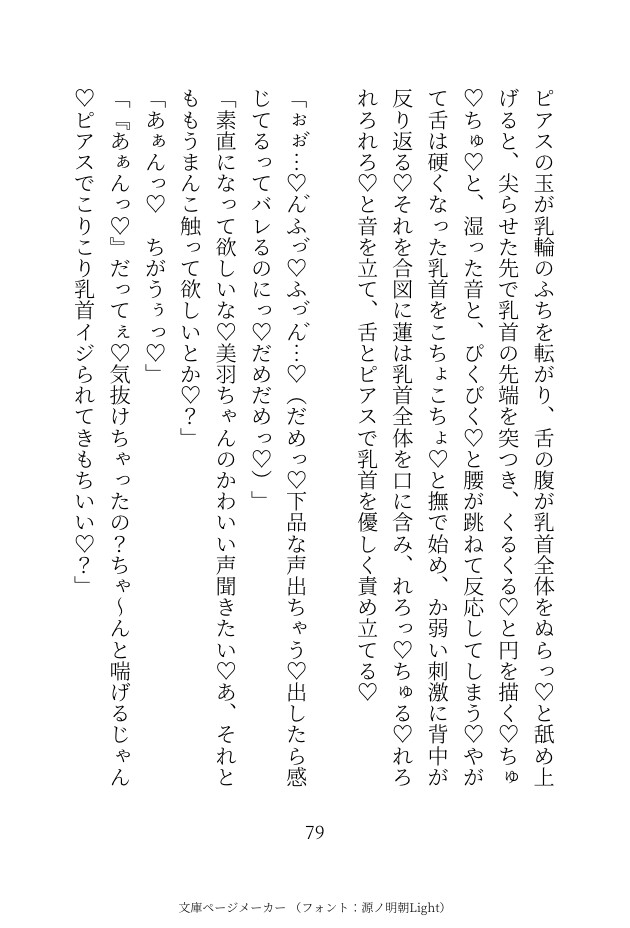 ピアスの玉が乳輪のふちを転がり、舌の腹が乳首全体をぬらっ♡と舐め上
げると、尖らせた先で乳首の先端を突つき、くるくる♡と円を描く♡ちゅ
♡ちゅ♡と、湿った音と、ぴくぴく♡と腰が跳ねて反応してしまう♡やが
て舌は硬くなった乳首をこちょこちょ♡と撫で始め、か弱い刺激に背中が
反り返る♡それを合図に蓮は乳首全体を口に含み、れろっ♡ちゅる♡れろ
れろれろ♡と音を立て、舌とピアスで乳首を優しく責め立てる♡
「ぉぉ゙…♡ん゙ふづ♡ふづん゙…♡（だめっ♡下品な声出ちゃう♡出したら感
じてるってバレるのにっ♡だめだめっ♡）」
「素直になって欲しいな♡美羽ちゃんのかわいい声聞きたい♡あ、それと
ももうまんこ触って欲しいとか♡？」
「あぁんっ♡　ちがうぅっ♡」
「『あぁんっ♡』だってぇ♡気抜けちゃったの？ちゃ〜んと喘げるじゃん
♡ピアスでこりこり乳首イジられてきもちいい♡？」
79
文庫ページメーカー（フォント：源ノ明朝Light）